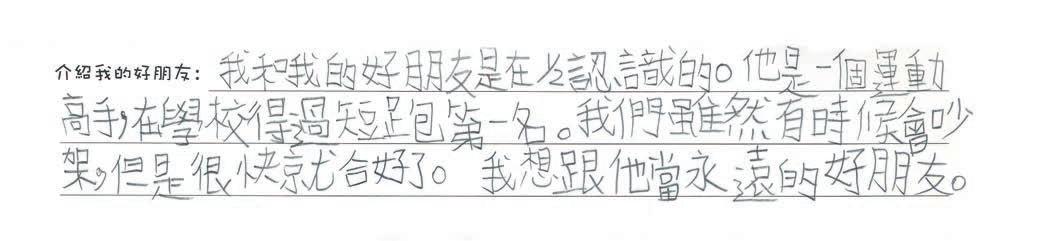 介紹我的好朋友：我和我的好朋友是在½認識的。他是一個運動
高手，在學校得過短跑第一名。我們雖然有時候會吵
架，但是很快就合好了。我想跟他當永遠的好朋友。